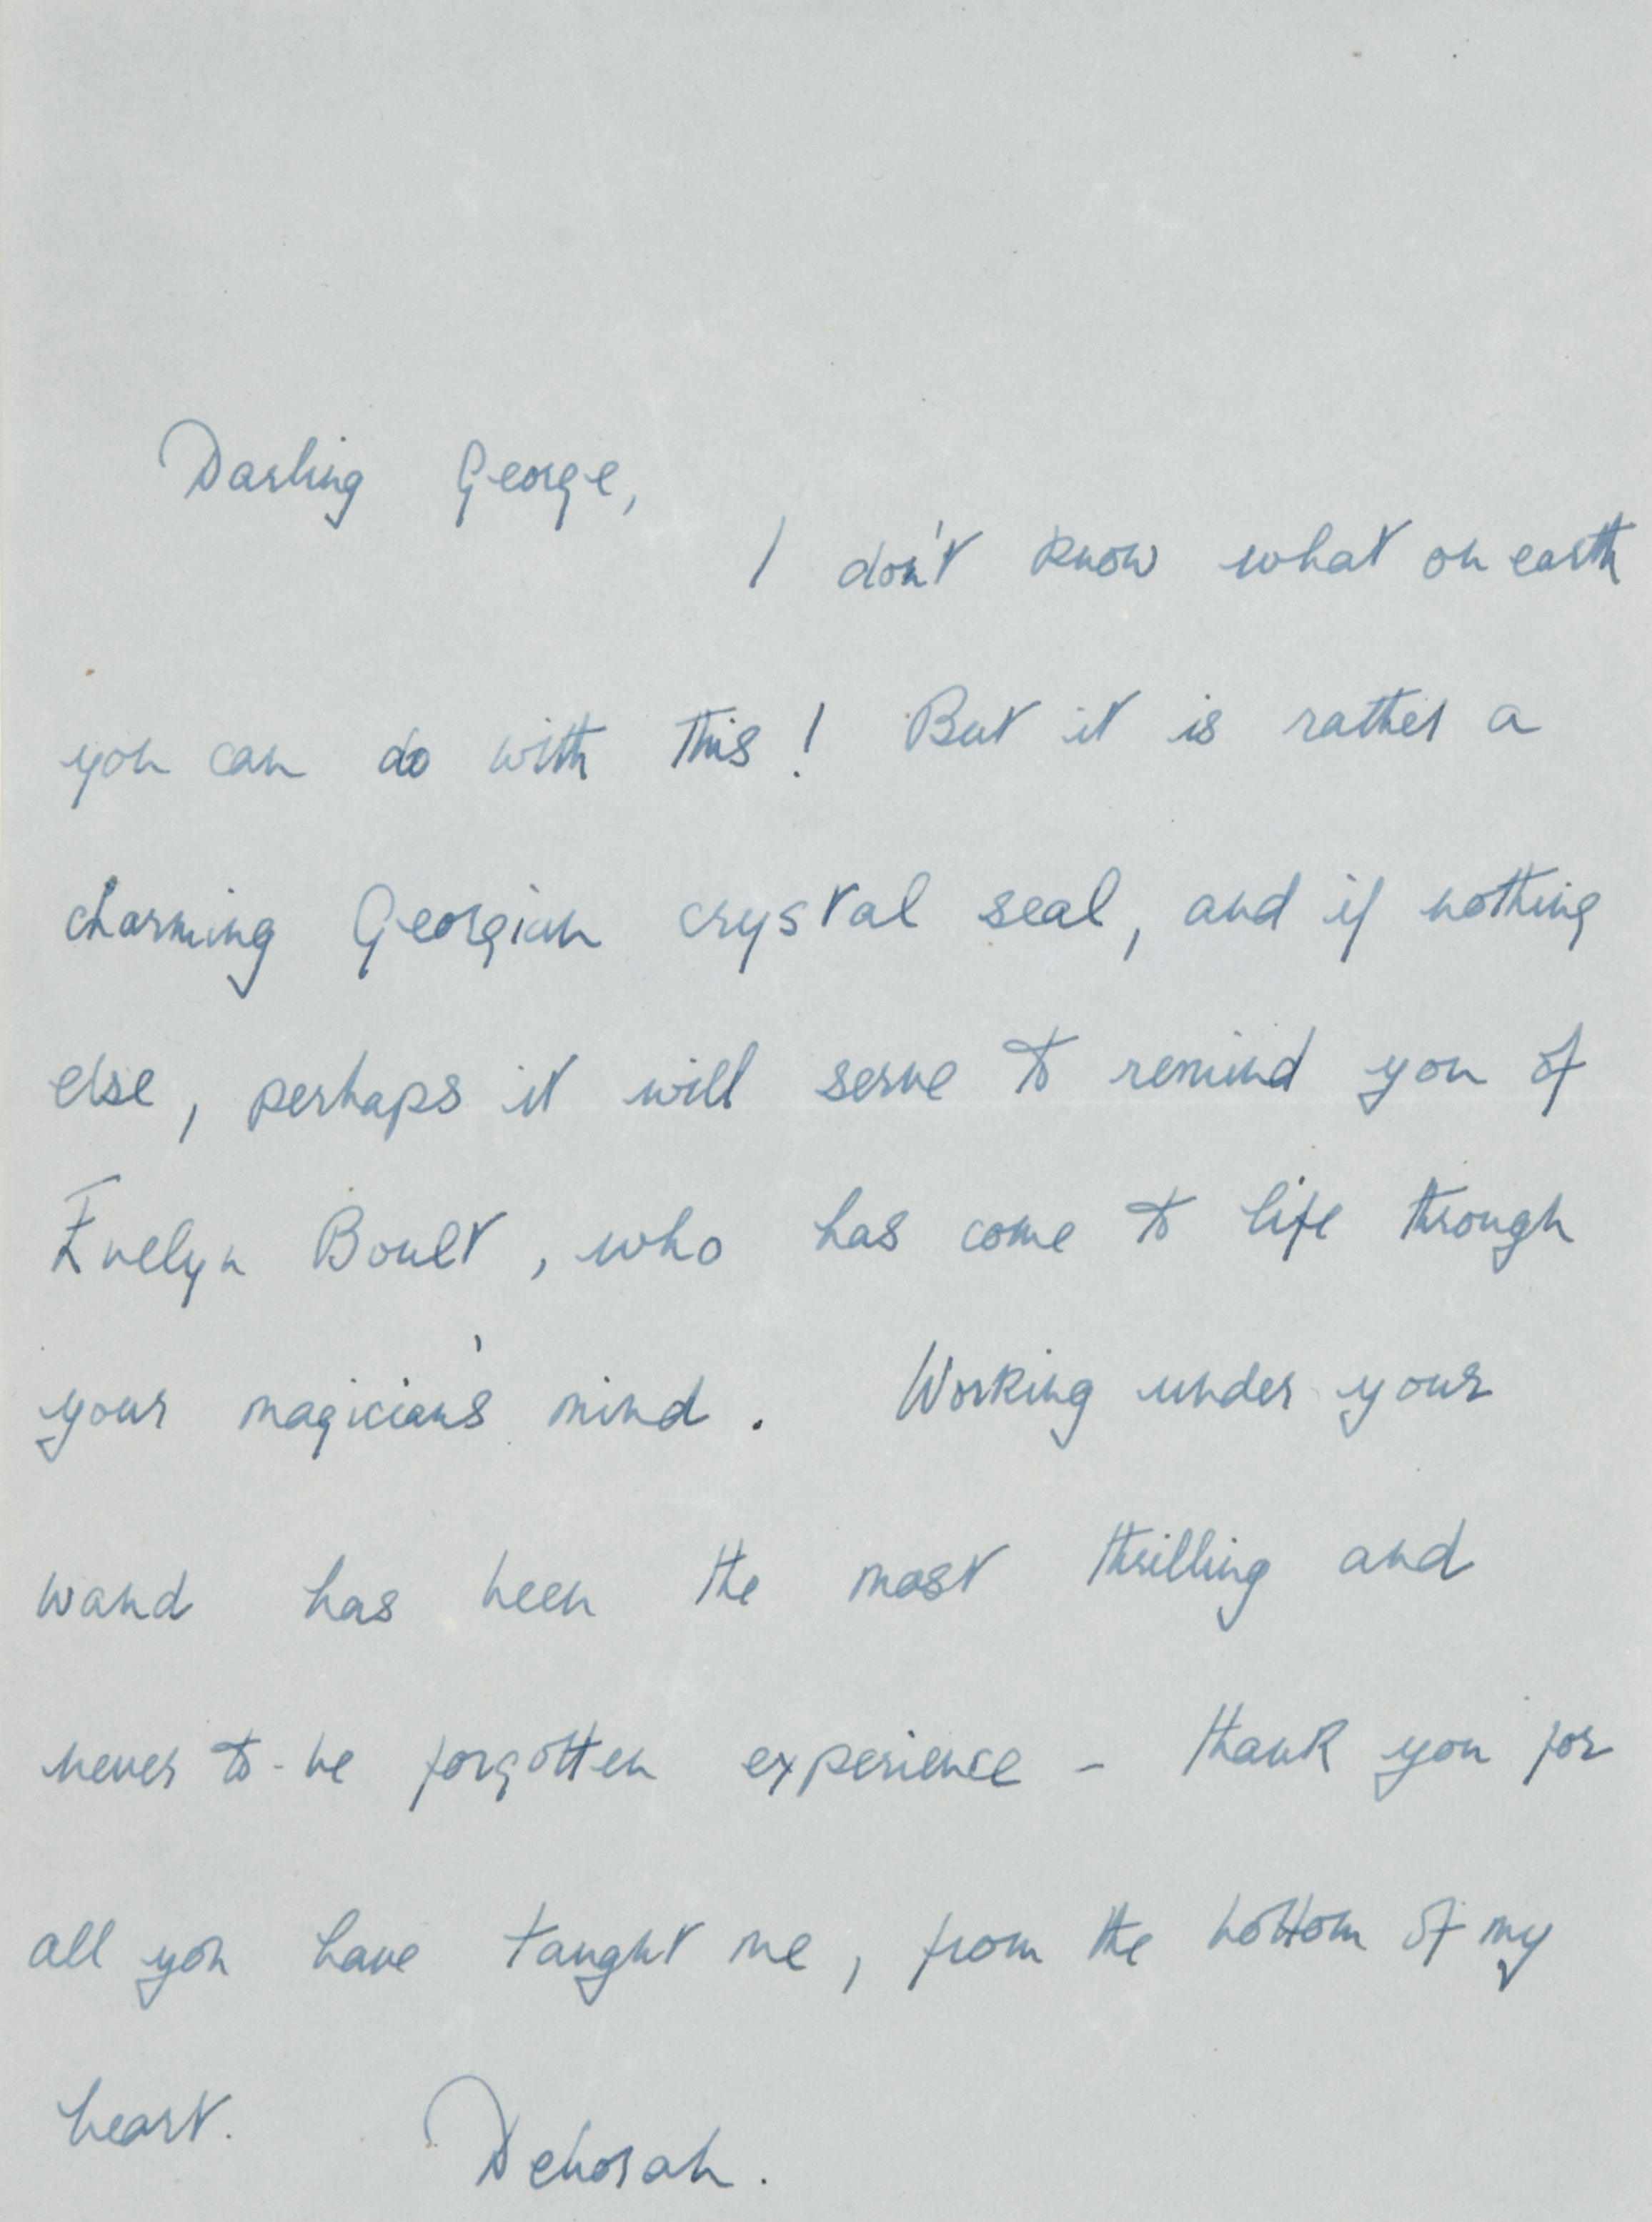 Darling George,
I don't know what on earth
you can do with this! But it is rather a
charming Georgian crystal seal, and if nothing
else, perhaps it will serve to remind you of
Evelyn Boult, who has come to life through
your magician's mind. Working under your
wand has been the most thrilling and
never to-be forgotten experience - thank you for
all you have taught me, from the bottom of my
heart. Deborah.